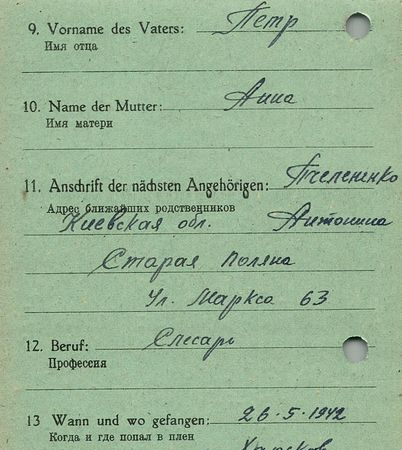 9. Vorname des Vaters: Петр
Имя отца
10. Name der Mutter: Анна
Имя матери
11. Anschrift der nächsten Angehörigen: Пчелененко
Адрес ближайших родственников
Киевская обл. Антонина
Старая Поляна
Ул. Маркса 63
12. Beruf: Слесарь
Профессия
13 Wann und wo gefangen: 26·5·1942
Когда и где попал в плен
Харьков